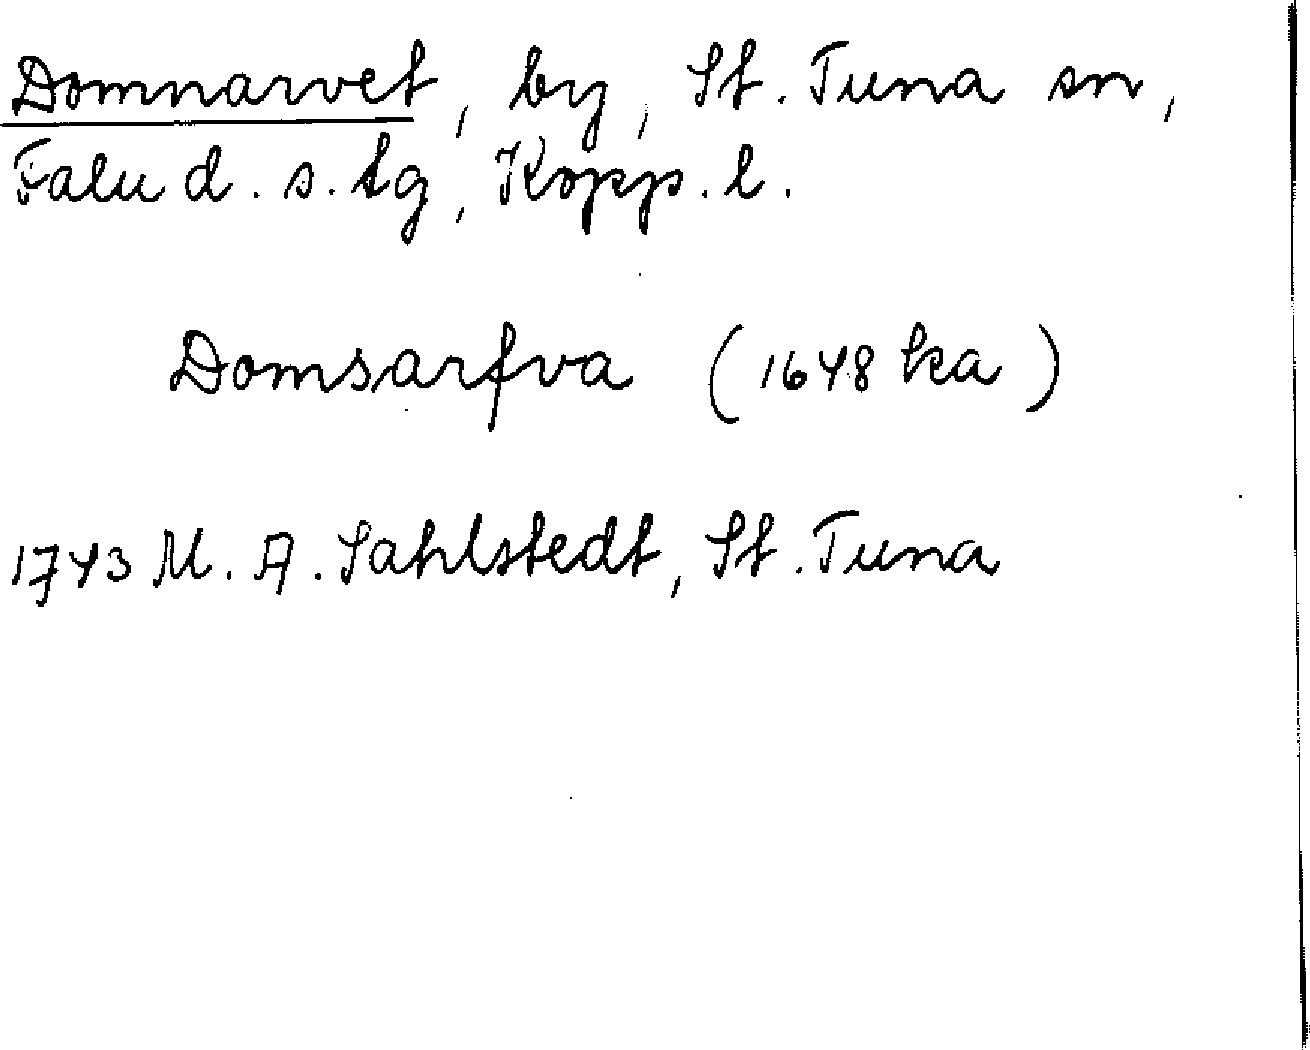 Domnarvet, by, St. Tuna sn,
Falu d. s. tg, Kopp. l.
Domsarfva (1648 ka)
1743 M. A. Sahlstedt, St. Tuna